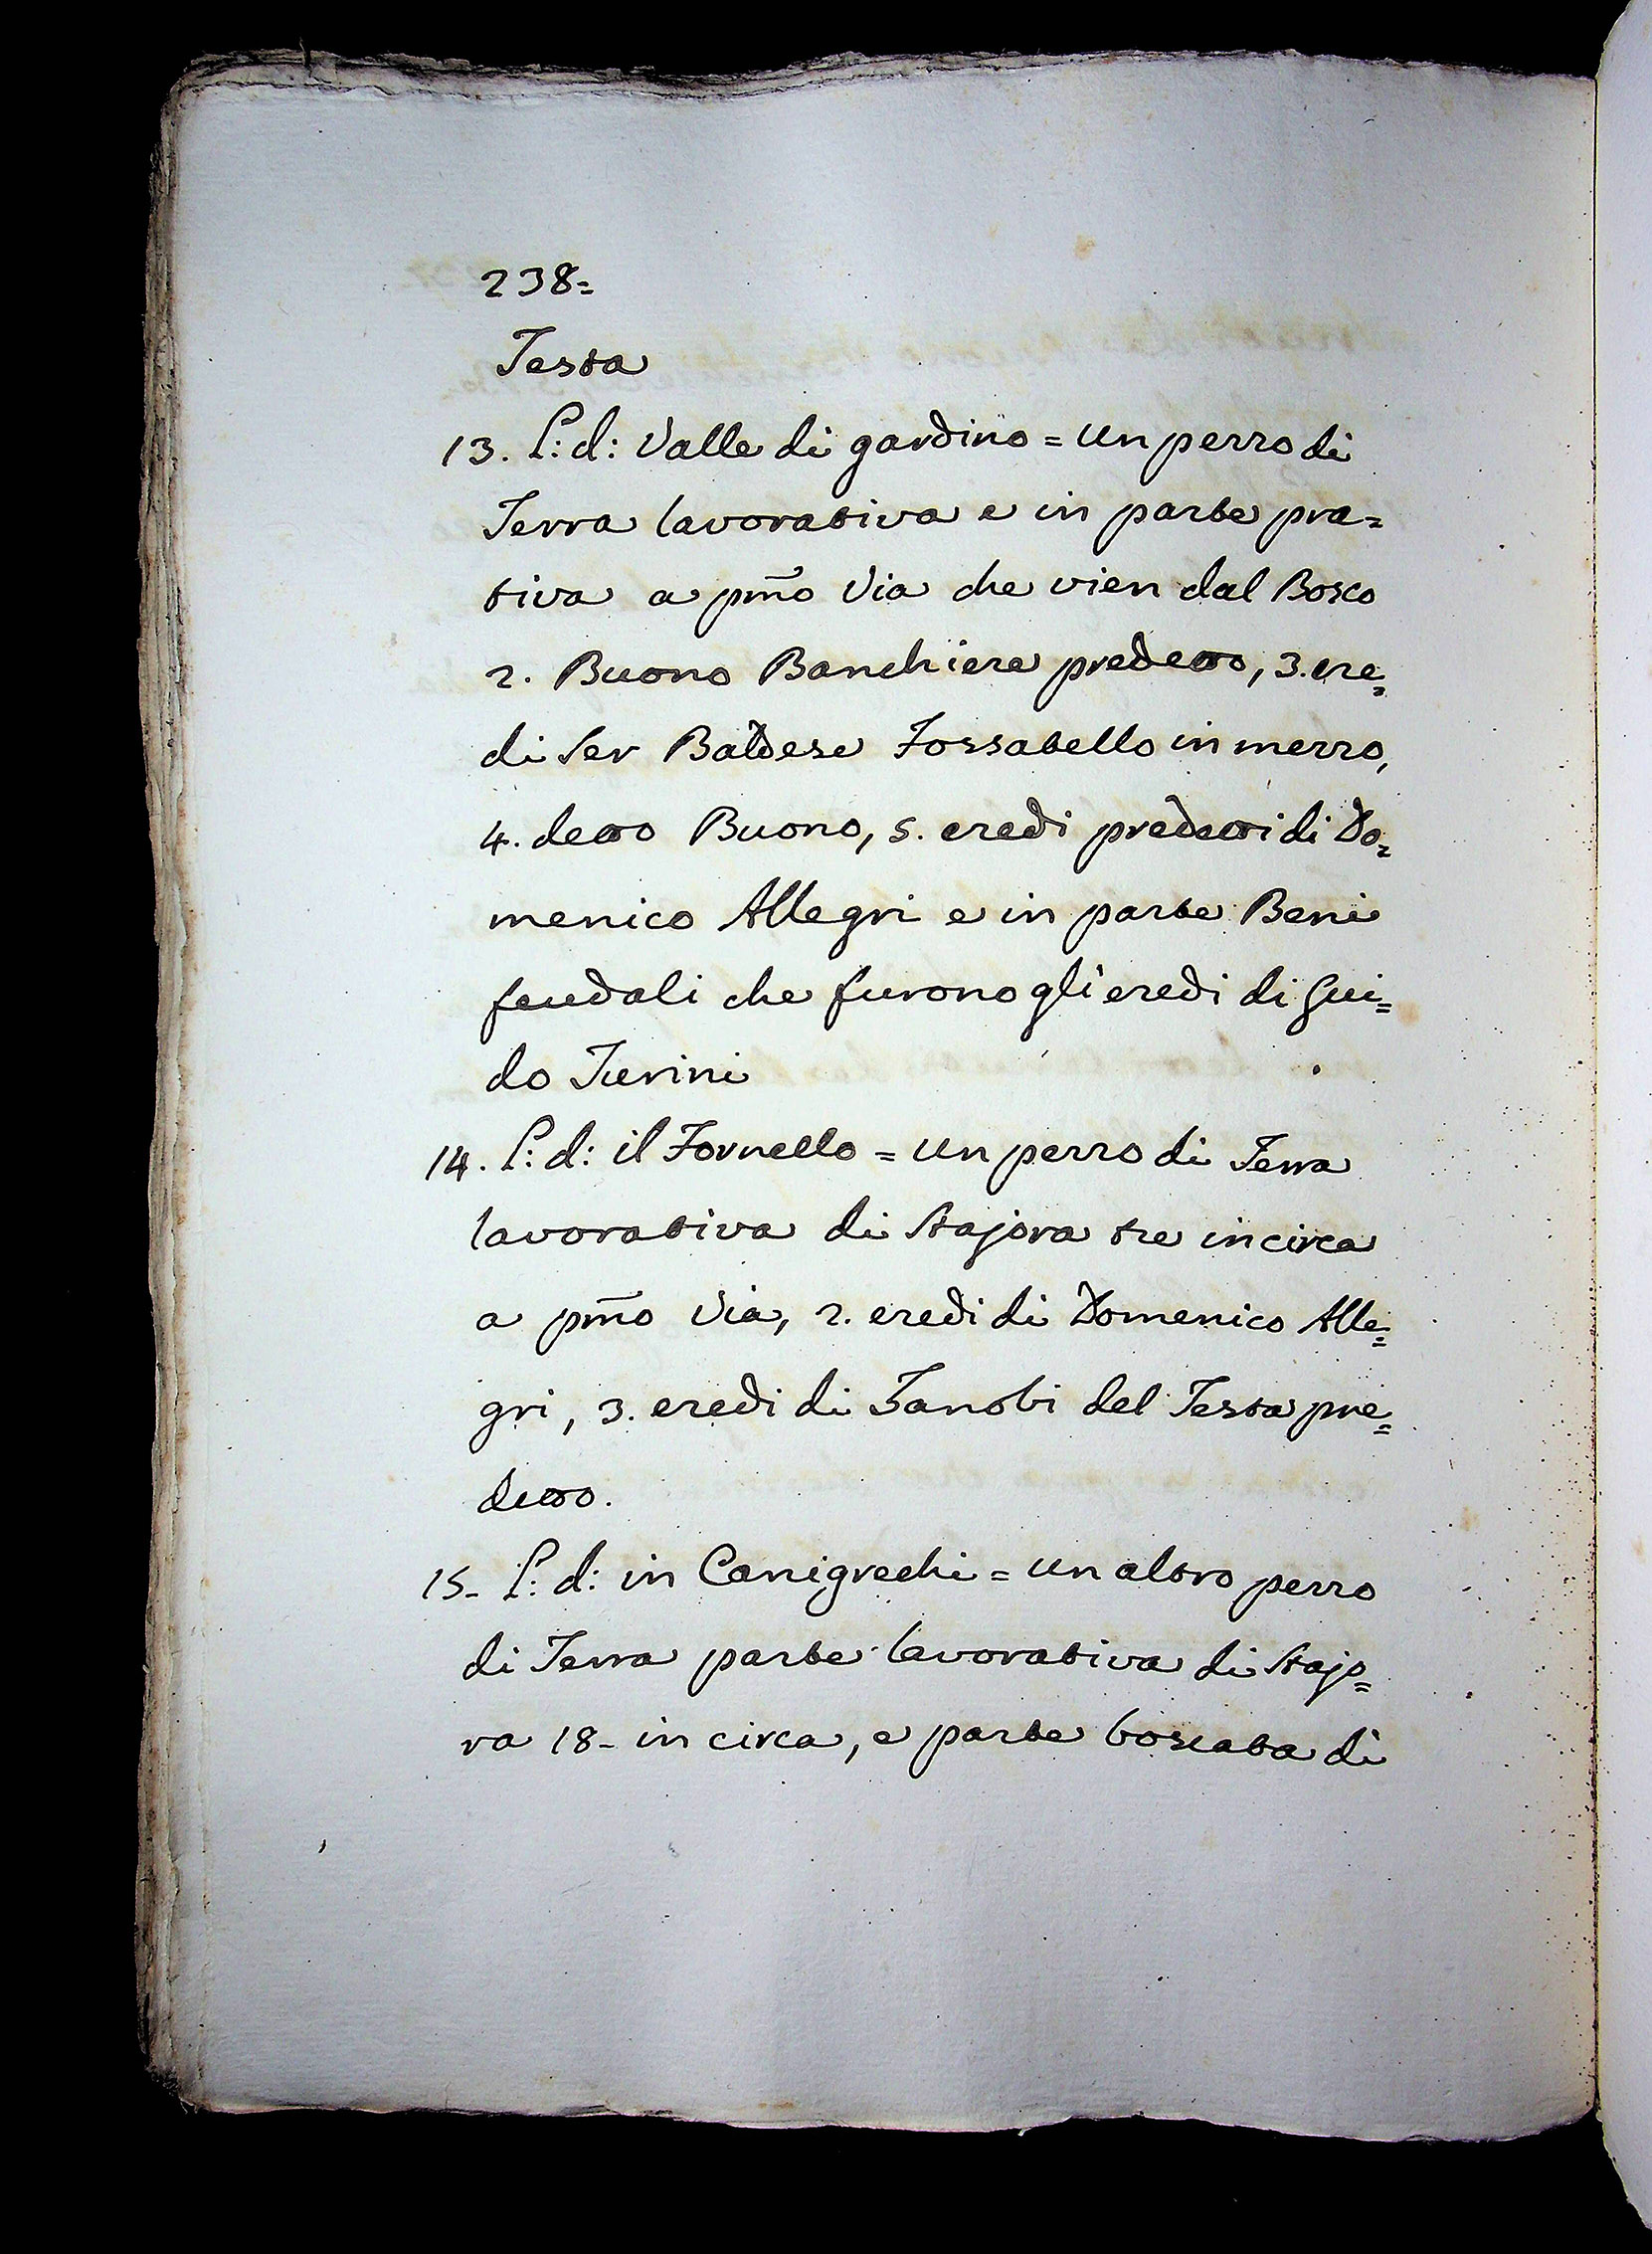 238=
Testa
13. L: d: Valle di gardino = un pezzo di
Terra lavorativa e in parte pra=
tiva a pm̃o Via che vien dal Bosco
2. Buono Banchiere predetto, 3. ere=
di Ser Baldese Fossatello in mezzo,
4. detto Buono, 5. eredi predetti di Do=
menico Allegri e in parte Beni
feudali che furono gli eredi di Gui=
do Turini
14. L: d: il Fornello = un pezzo di Terra
lavorativa di Stajora tre in circa
a pm̃o Via, 2. eredi di Domenico Alle=
gri, 3. eredi di Zanobi del Testa pre=
detto.
15- L: d: in Canigrechi = un altro pezzo
di Terra parte lavorativa di Stajo=
ra 18- in circa, e parte boscata di